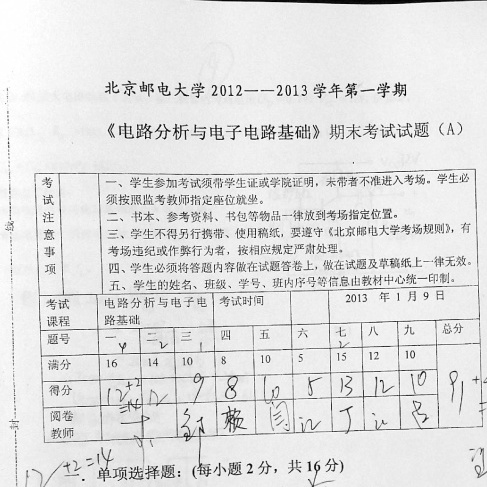 北京邮电大学2012——2013学年第一学期
《电路分析与电子电路基础》期末考试试题（A）
考试注意事项
一、学生参加考试须带学生证或学院证明，未带者不准进入考场。学生必
须按照监考教师指定座位就坐。
二、书本、参考资料、书包等物品一律放到考场指定位置。
三、学生不得另行携带、使用稿纸，要遵守《北京邮电大学考场规则》，有
考场违纪或作弊行为者，按相应规定严肃处理。
四、学生必须将答题内容做在试题答卷上，做在试题及草稿纸上一律无效。
五、学生的姓名、班级、学号、班内序号等信息由教材中心统一印制。
考试课程 电路分析与电子电路基础 考试时间 2013 年 1 月 9 日
题号 一 二 三 四 五 六 七 八 九 总分
满分 16 14 10 8 10 5 15 12 10
得分 12+2=14 12 9 8 10 5 13 12 10 91
阅卷教师
12+2=14
一、单项选择题：(每小题 2 分，共 16 分)